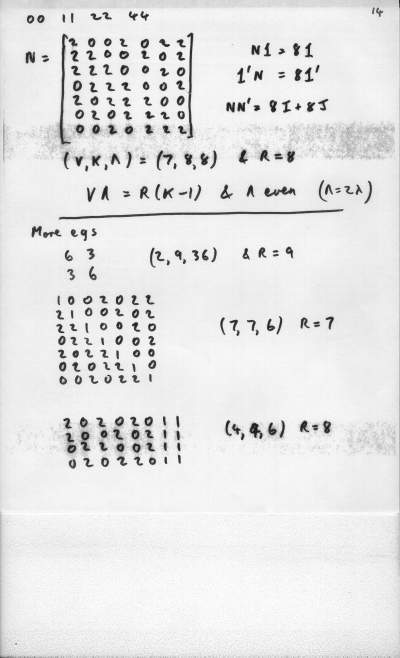 14
00 11 22 44
N = 2 0 0 2 0 2 2
2 2 0 0 2 0 2
2 2 2 0 0 2 0
0 2 2 2 0 0 2
2 0 2 2 2 0 0
0 2 0 2 2 2 0
0 0 2 0 2 2 2
N1 = 81
1'N = 81'
NN' = 8I+8J
(V, K, Λ) = (7, 8, 8) & R = 8
VΛ = R(K-1) & Λ even (Λ=2λ)
More egs
6 3
3 6
(2, 9, 36) & R = 9
1 0 0 2 0 2 2
2 1 0 0 2 0 2
2 2 1 0 0 2 0
0 2 2 1 0 0 2
2 0 2 2 1 0 0
0 2 0 2 2 1 0
0 0 2 0 2 2 1
(7, 7, 6) R = 7
2 0 2 0 2 0 1 1
2 0 0 2 0 2 1 1
0 2 2 0 0 2 1 1
0 2 0 2 2 0 1 1
(4, 4, 6) R = 8